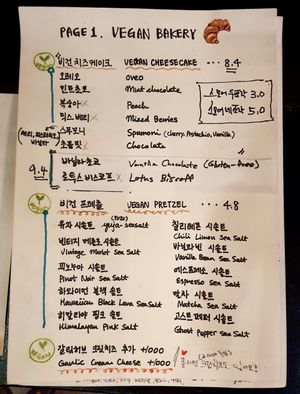 PAGE 1. VEGAN BAKERY
비건 치즈케이크 VEGAN CHEESECAKE 8.4
오레오 oreo
민트초코 Mint chocolate
복숭아 Peach
믹스베리 Mixed Berries
스푸모니 Spumoni (cherry, Pistachio, Vanilla)
초콜릿 Chocolate
스콘 3.0
5.0
9.4
바닐라초코 Vanilla Chocolate (Gluten-free)
로투스 비스코프 Lotus Biscoff
비건 프레즐 VEGAN PRETZEL 4.8
유자 시솔트 yuja-seasalt
칠리라임 시솔트
Chili Limeu Sea Salt
빈티지 메를로 시솔트
Vintage Merlot Sea Salt
바닐라빈 시솔트
Vanilla Bean Sea Salt
피노누아 시솔트
Pinot Noir Sea Salt
에스프레소 시솔트
Espresso Sea Salt
하와이안 블랙 솔트
Hawaiian Black Lava Sea Salt
말차 시솔트
Matcha Sea Salt
히말라야 핑크 솔트
Himalayan Pink Salt
고스트 페퍼 시솔트
Ghost Pepper Sea Salt
VEGAN
갈릭허브 크림치즈 추가 +1000
Garlic Cream Cheese +1000